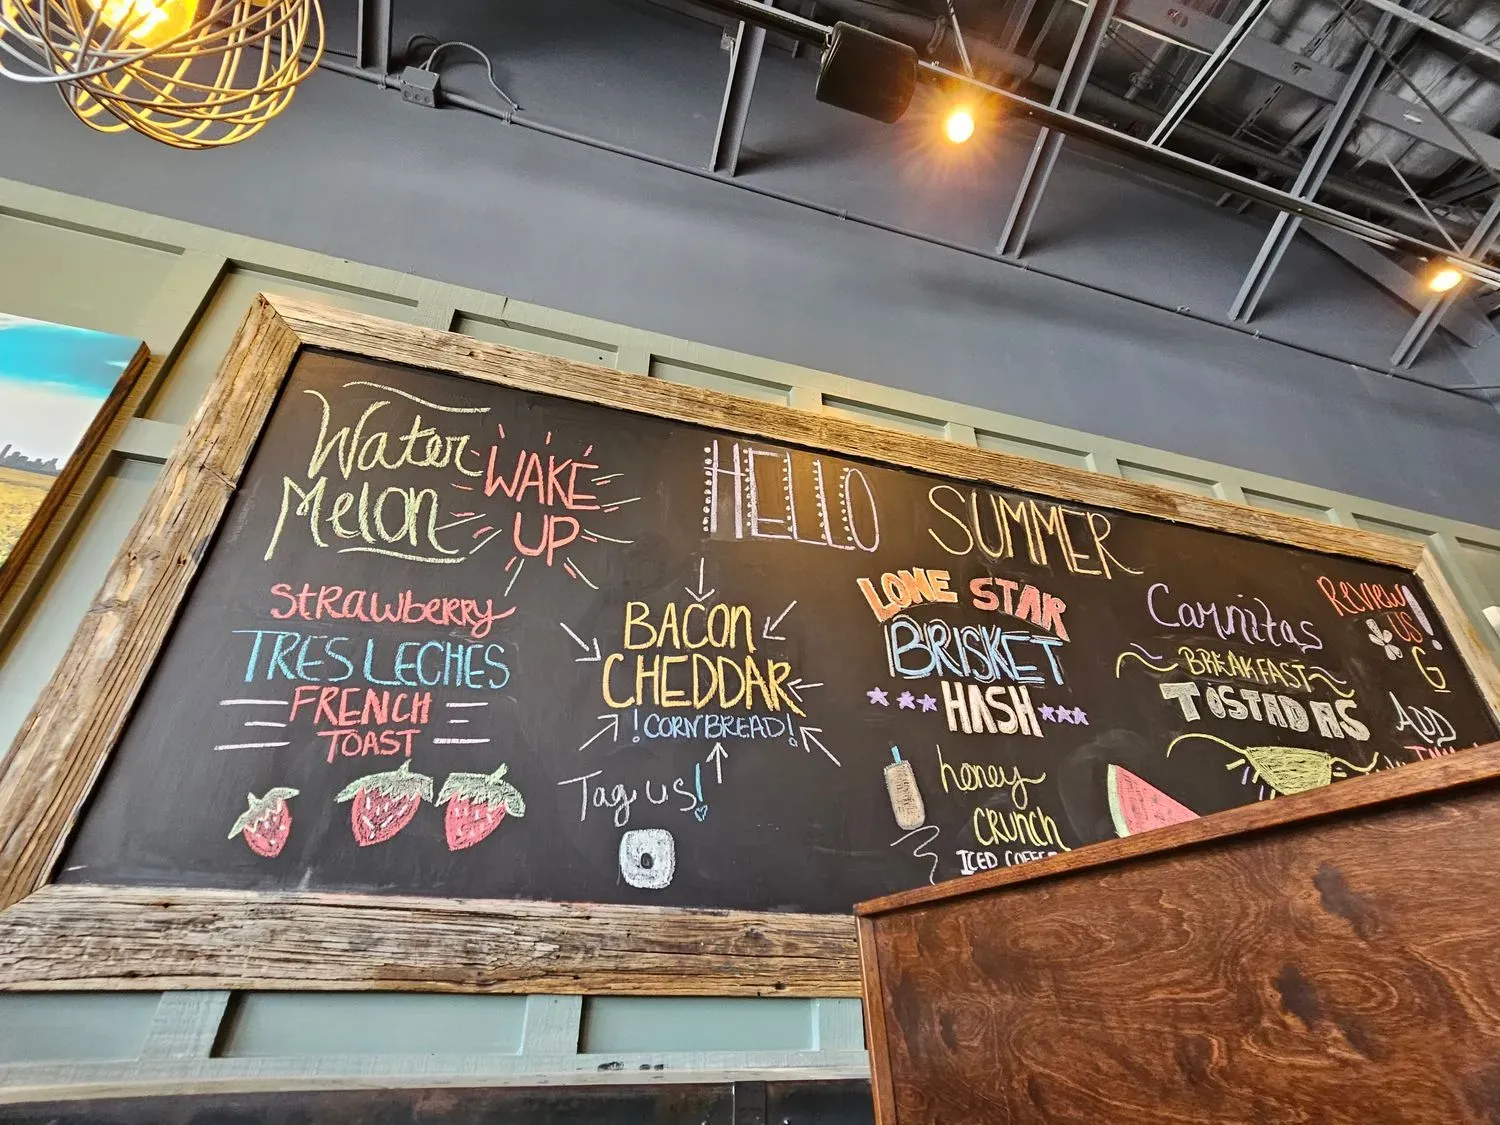 Water
Melon
WAKE
UP
HELLO SUMMER
StRAWbERRY
TRES LECHES
FRENCH
TOAST
BACON
CHEDDAR
!CORNBREAD!
Tag us!
LONE STAR
BRISKET
HASH
honey
CRUNCH
ICED COFFEE
Carnitas
BREAKFAST
TOSTADAS
REVIEW
US!
G
ADD